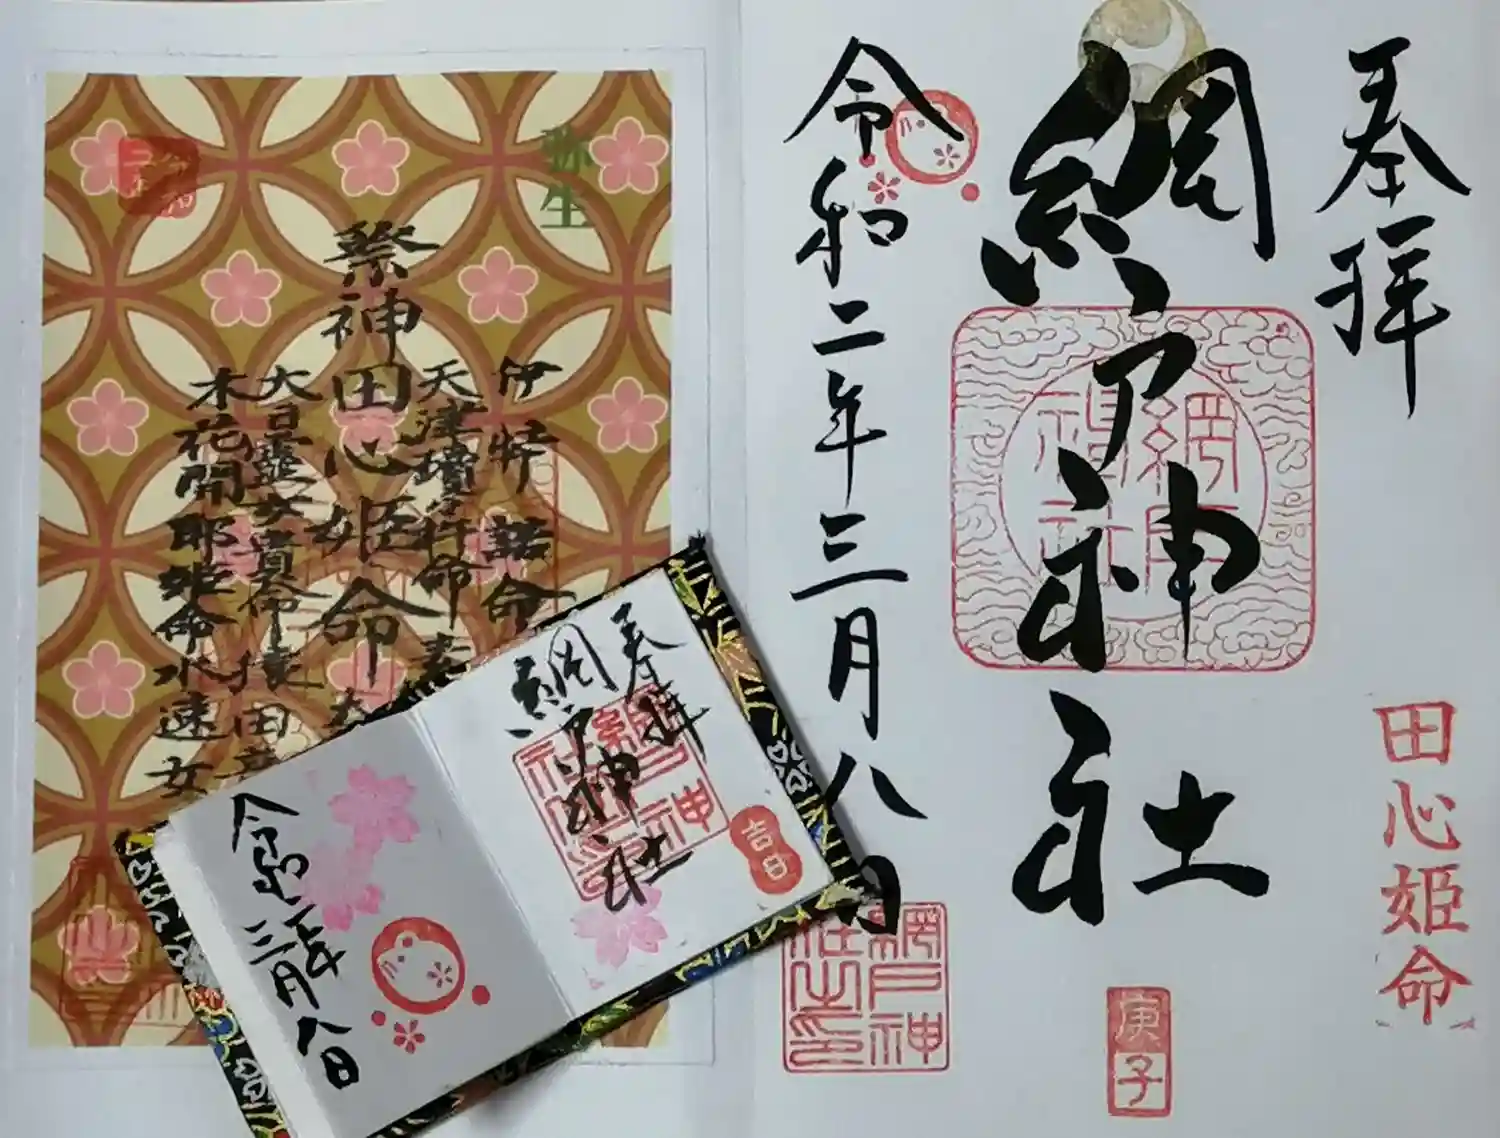 奉拝
網戸神社
令和二年三月八日
田心姫命
庚子
網戸神社
網戸神社之印
弥生
祭神
田心姫命
伊弉諾命
天津彦行命
大日孁女貴命
木花開耶姫命
水速女
令和二年
奉拝
網戸神社
網戸神社之印
吉日
令和二年
三月八日